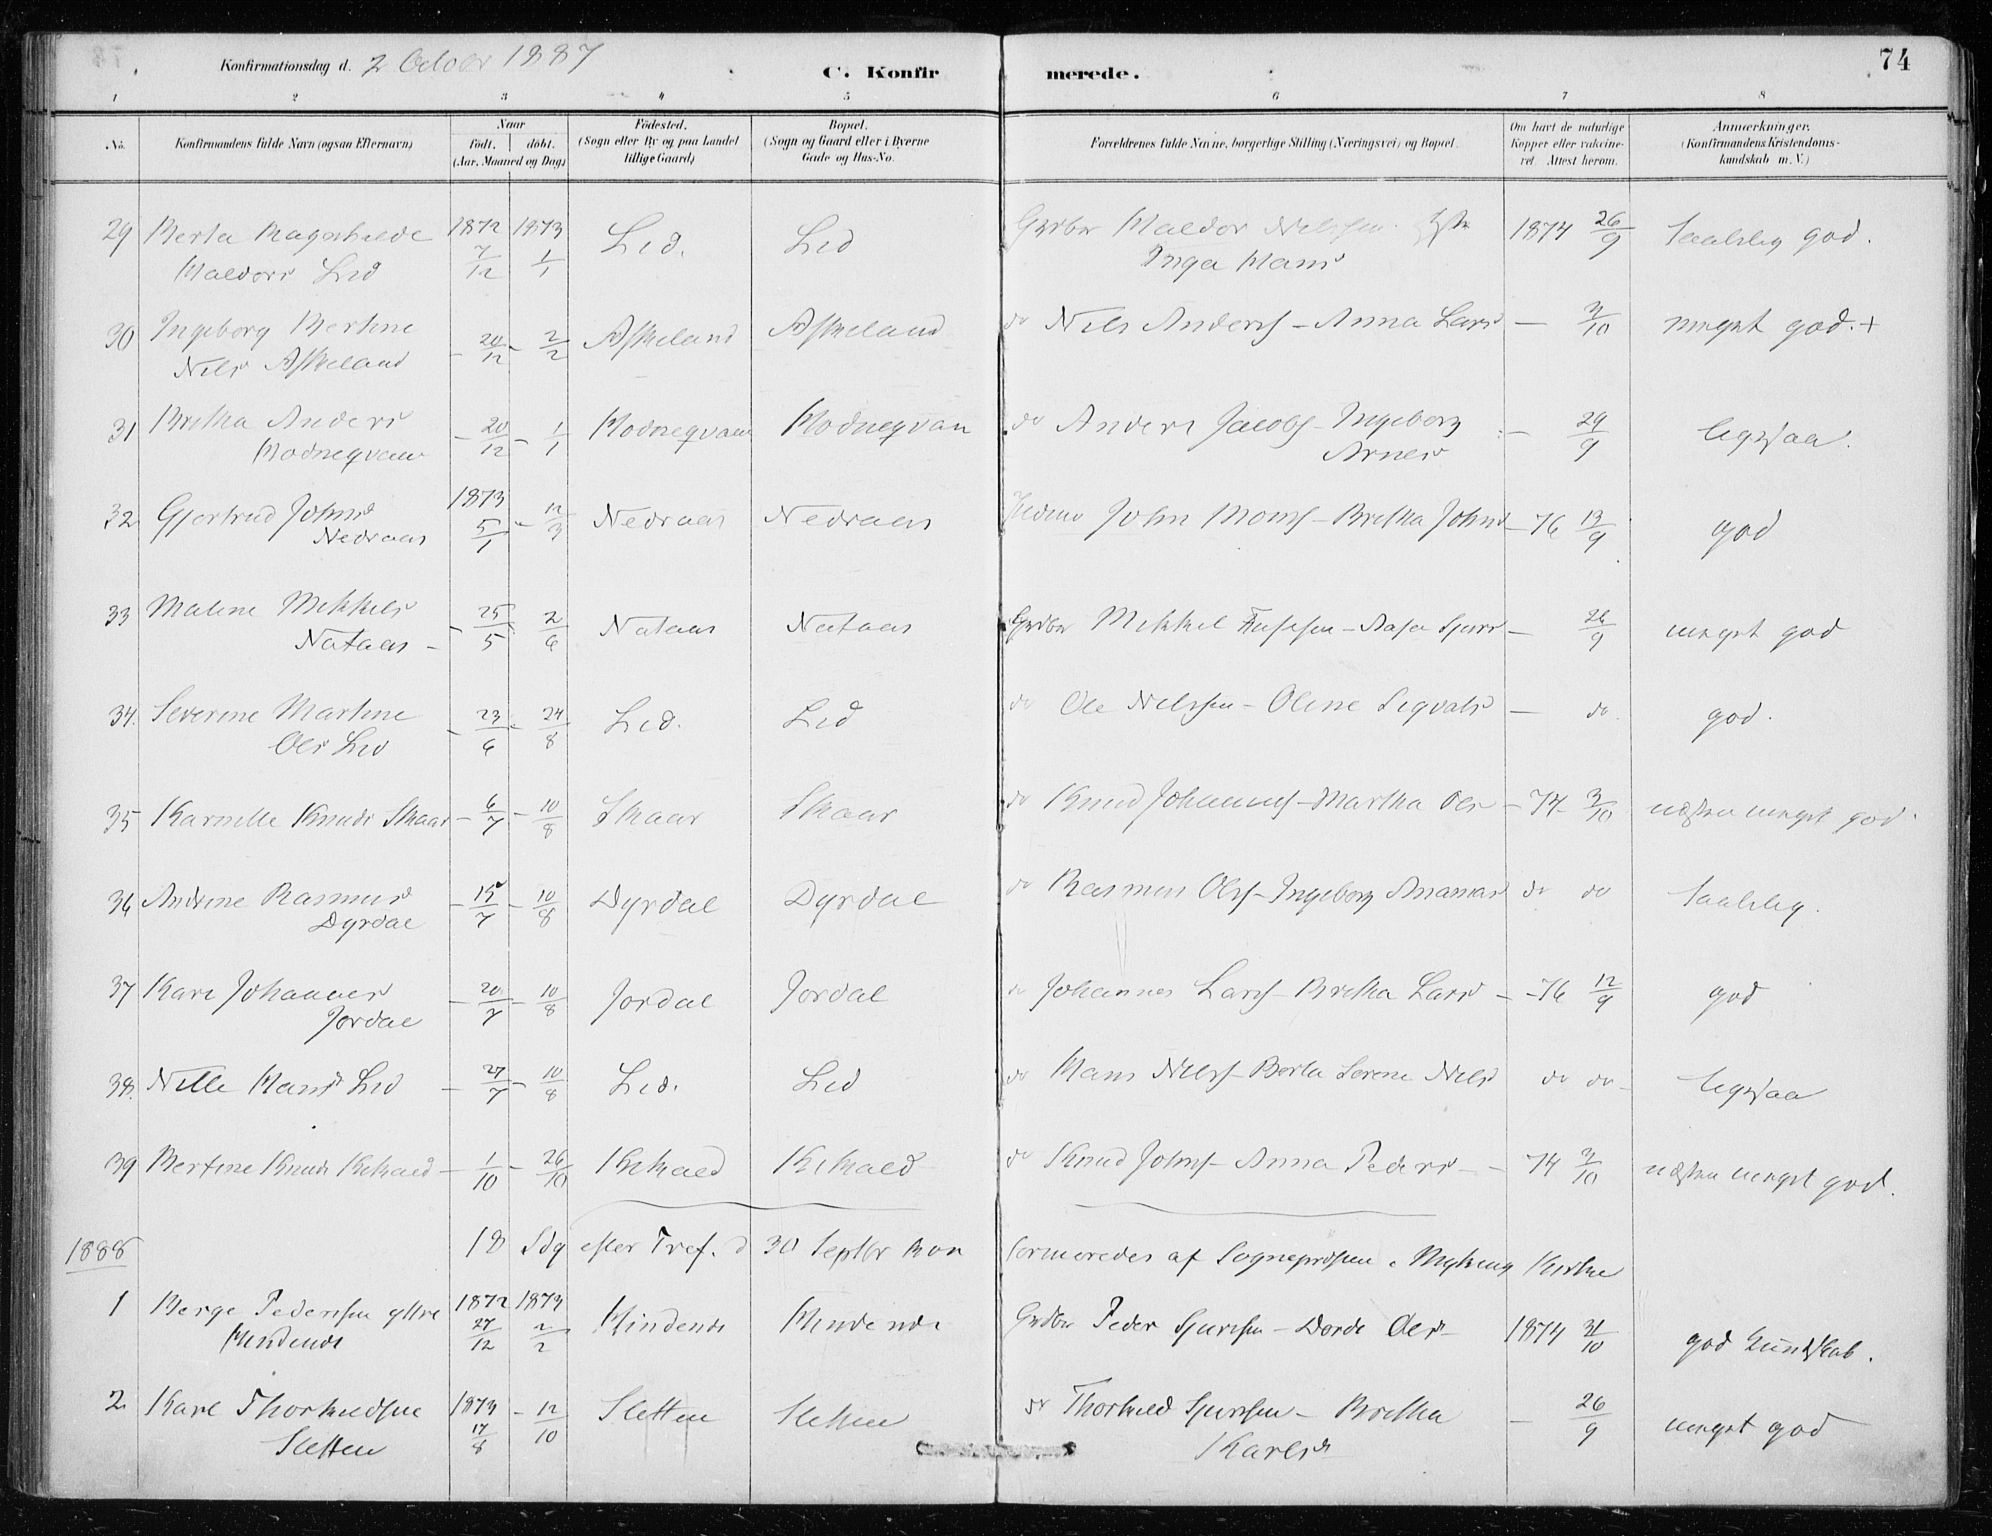 74
Konfirmationsdag d. 2 October 1887
C. Konfirmerede.
1 2 3 4 5 6 7 8
No. Konfirmandens fulde Navn (ogsaa Efternavn) Naar født. døbt. (Aar, Maaned og Dag) Fødested. (Sogn eller By og paa Landet tillige Gaard) Bopæl. (Sogn og Gaard eller i Byerne Gade og Hus-No. Forældrenes fulde Navne, borgerlige Stilling (Næringsvei) og Bopæl. Om havt de naturlige Kopper eller vakcineret. Attest herom. Anmærkninger. (Konfirmandens Kristendomskundskab m. V.)
29 Berta Ragnhilde 1872 1873 Lid. Lid Grdbr Haldor Nilssen 1874 26/9 Taalelig god.
Haldors Lid 7/12 1/1 Inga Hans
30 Ingeborg Bertine Askeland Askeland do Nils Anders - Anna Lars — 3/10 meget god. +
Nils Askeland - 20/12 - 2/2
31 Britha Anders - 20/12 - 1/1 Hodneqvam Hodneqvam do Anders Jacobs - Ingeborg — 29/9 ligesaa.
Hodneqvam Arnes
32 Gjertrud Johns 1873 5/1 - 12/3 Nedraas Nedraas John Mons - Britha Johns - 76 13/9 god
Nedraas
33 Maline Mikkels - 25/5 - 2/6 Nataas Nataas Grdbr Mikkel - Aasa Sjurs — 26/9 meget god
Nataas -
34. Severine Martine - 23/6 - 24/8 Lid. Lid do Ole Nilssen - Oline Sigvals — do. god.
Ols Lid
35 Karnille Knuds Skaar - 6/7 - 10/8 Skaar Skaar do Knud Johannes - Martha Ols - 74 - 3/10 næsten meget god.
36 Andrine Rasmus - 15/7 - 10/8 Dyrdal Dyrdal do Rasmus Ols - Ingeborg do do Taalelig.
Dyrdal
37 Kari Johannes - 20/7 - 10/8 Jordal Jordal do Johannes Lars - Britha Lars - - 76 12/9 god
Jordal
38. Nille Hans Lid - 27/7 - 10/8 Lid. Lid do Hans Nils - Berta Serene Nils do do - ligesaa
39 Bertine Knuds - 1/10 - 26/10 do Knud Johns - Anna Peders - - 74 3/10 næsten meget god.
1888 18 Sdg efter Tref. d 30 Septbr Konfirmeredes af Sogneprsten i Kirke
1 Berge Pederssen ytre 1872 1873 Hindenes Hindenes Grdbr Peder Sjurssen - Dorde Ols - 1874 31/10 god Kundskab.
Hindenes 27/12 2/2
2 Karl Thorkildsen 1873 - 12/10 Sletten Sletten do Thorkild Sjurssen - Britha — 26/9 meget god
Sletten 17/8 Karls